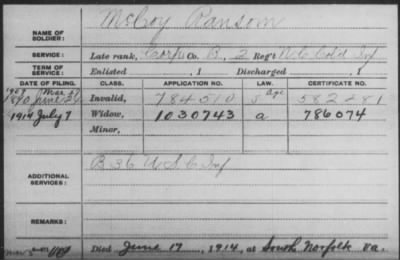 McCoy Ransom
NAME OF
SOLDIER:
SERVICE: Late rank, Corp Co. B, 2 Reg't N.C. Cold Inf
TERM OF
SERVICE: Enlisted , 1 Discharged , 1
DATE OF FILING. CLASS. APPLICATION NO. LAW. CERTIFICATE NO.
1907 Mar 27 Age
1890 June 26 Invalid, 784510 582281
1914 July 7 Widow, 1030743 a 786074
Minor,
ADDITIONAL
SERVICES:
B 36 U S C Inf
REMARKS:
Died June 17, 1914, at South Norfolk Va.